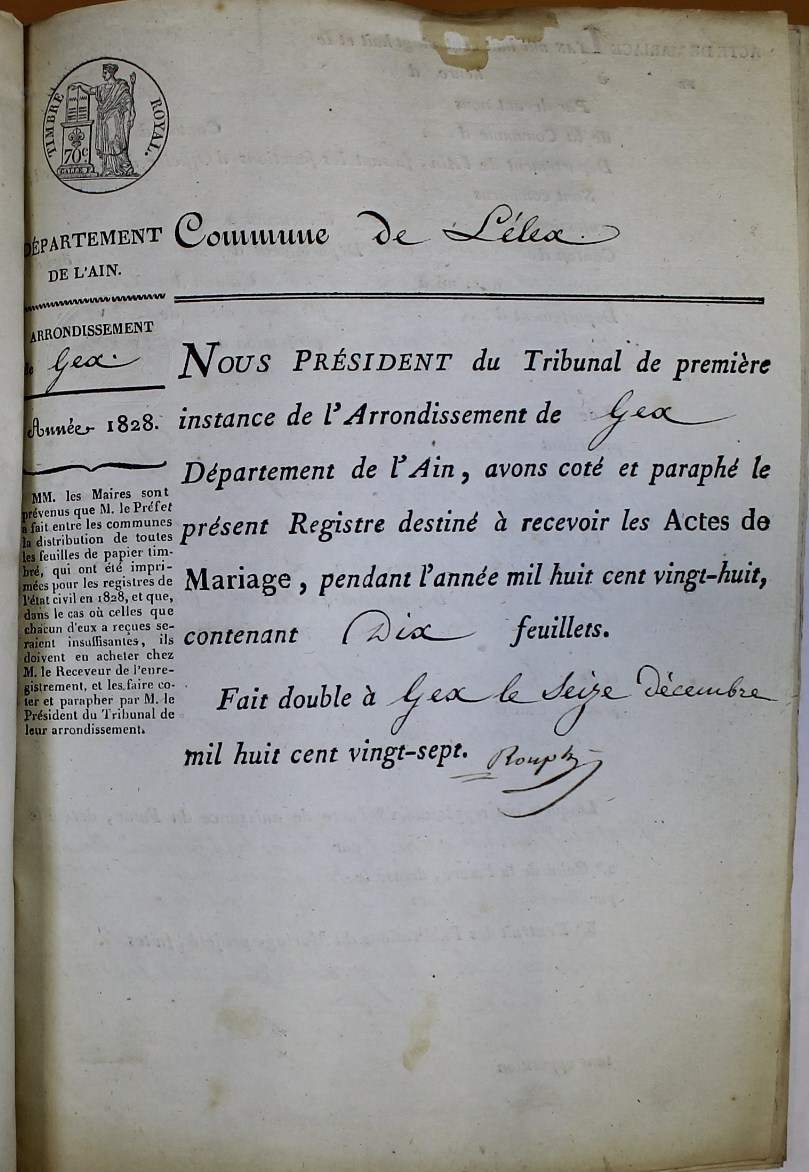 TIMBRE ROYAL.
70c
DÉPARTEMENT
DE L'AIN.
Commune de Lélex.
ARRONDISSEMENT
de Gex.
Année 1828.
MM. les Maires sont
prévenus que M. le Préfet
a fait entre les communes
la distribution de toutes
les feuilles de papier tim-
bré, qui ont été impri-
mées pour les registres de
l'état civil en 1828, et que,
dans le cas où celles que
chacun d'eux a reçues se-
raient insuffisantes, ils
doivent en acheter chez
M. le Receveur de l'enre-
gistrement, et les faire co-
ter et parapher par M. le
Président du Tribunal de
leur arrondissement.
NOUS PRÉSIDENT du Tribunal de première
instance de l'Arrondissement de Gex
Département de l'Ain, avons coté et paraphé le
présent Registre destiné à recevoir les Actes de
Mariage, pendant l'année mil huit cent vingt-huit,
contenant Dix feuillets.
Fait double à Gex le Seize décembre
mil huit cent vingt-sept.